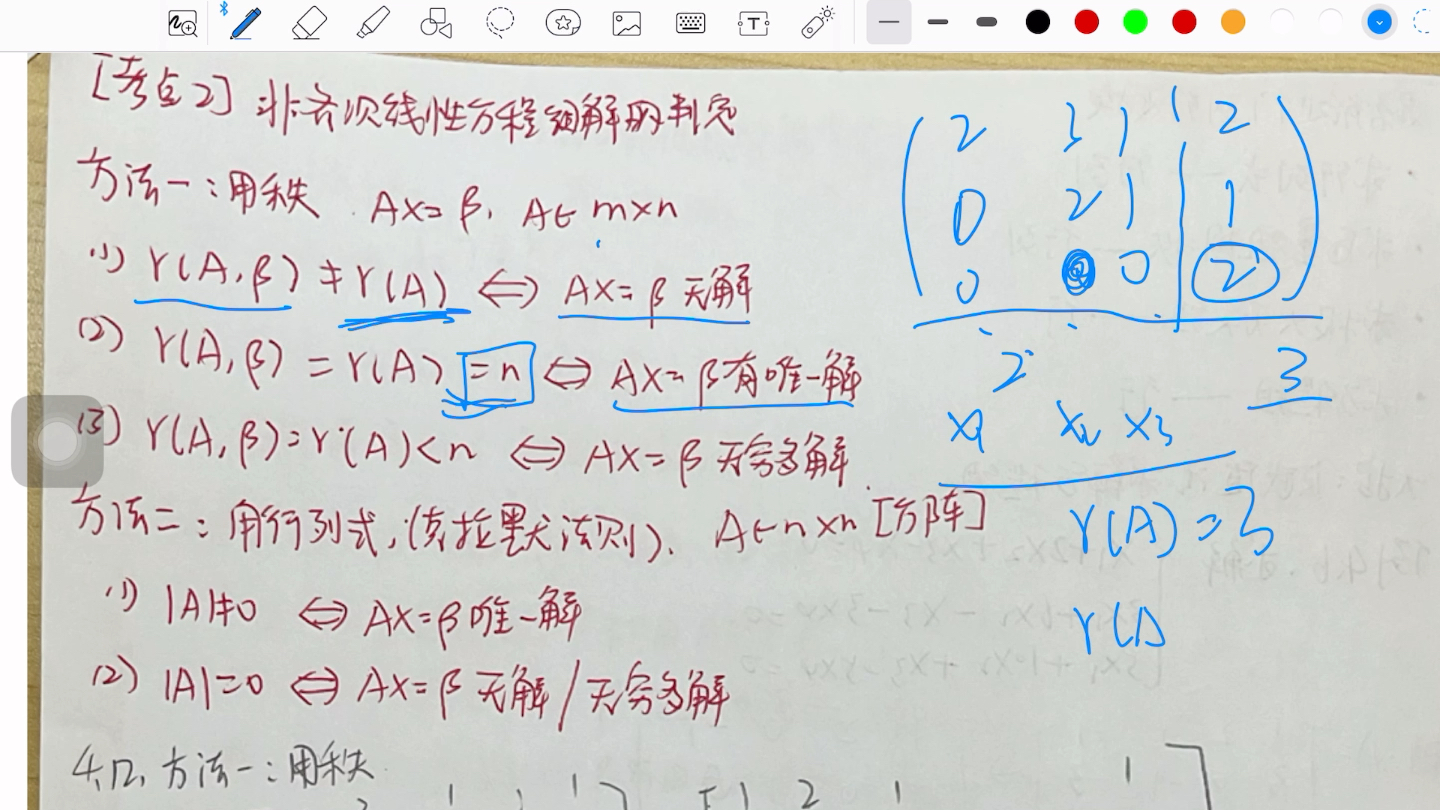 [考点2] 非齐次线性方程组解的判定
方法一:用秩 AX=β, A∈m×n
(1) r(A,β)≠r(A) ⇔ AX=β无解
(2) r(A,β)=r(A)=n ⇔ AX=β有唯一解
(3) r(A,β)=r(A)<n ⇔ AX=β无穷多解
方法二:用行列式,(克拉默法则). A∈n×n [方阵]
(1) |A|≠0 ⇔ AX=β唯一解
(2) |A|=0 ⇔ AX=β无解/无穷多解
4.12. 方法一:用秩
2 3 1 2
0 2 1 1
0 0 2
2 3
x1 x2 x3
r(A)=3
r(A